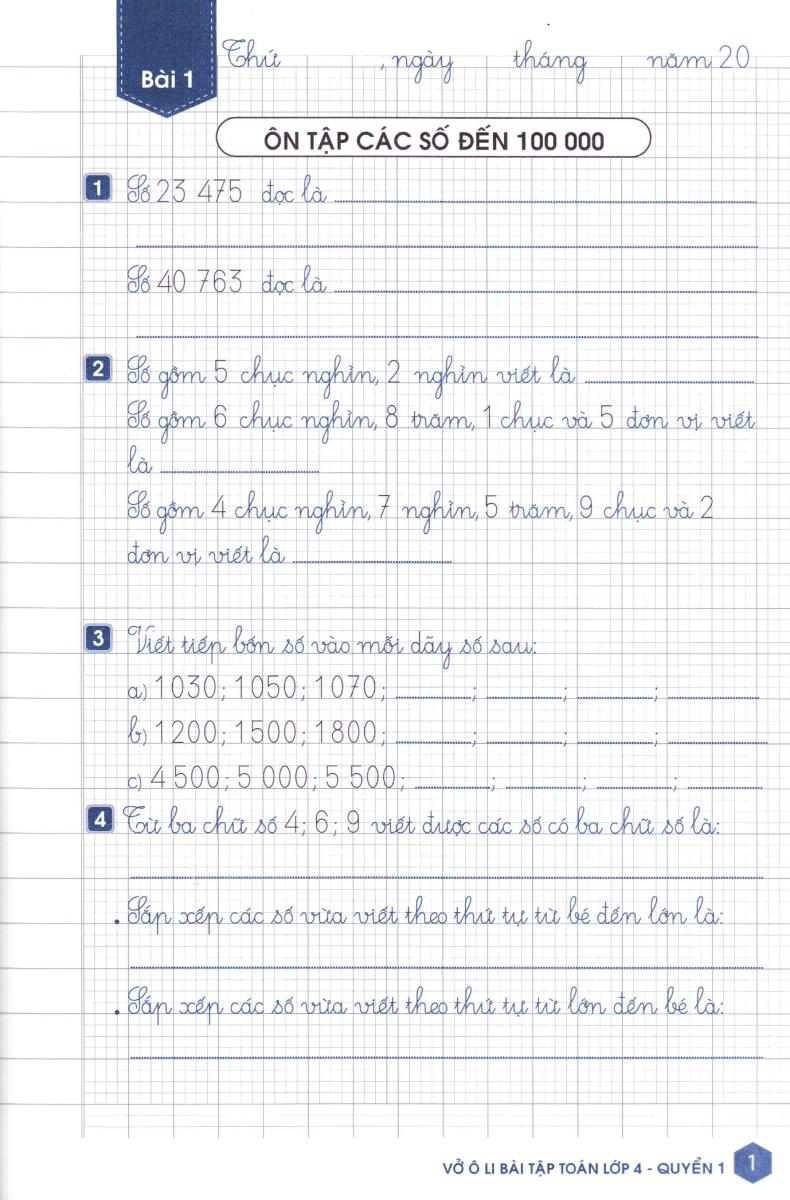 Bài 1
Thứ , ngày tháng năm 20
ÔN TẬP CÁC SỐ ĐẾN 100 000
1 Số 23 475 đọc là
Số 40 763 đọc là
2 Số gồm 5 chục nghìn, 2 nghìn viết là
Số gồm 6 chục nghìn, 8 trăm, 1 chục và 5 đơn vị viết
là
Số gồm 4 chục nghìn, 7 nghìn, 5 trăm, 9 chục và 2
đơn vị viết là
3 Viết tiếp bốn số vào mỗi dãy số sau:
a) 1030; 1050; 1070; ; ; ;
b) 1200; 1500; 1800; ; ; ;
c) 4 500; 5 000; 5 500; ; ; ;
4 Từ ba chữ số 4; 6; 9 viết được các số có ba chữ số là:
. Sắp xếp các số vừa viết theo thứ tự từ bé đến lớn là:
. Sắp xếp các số vừa viết theo thứ tự từ lớn đến bé là:
VỞ Ô LI BÀI TẬP TOÁN LỚP 4 - QUYỂN 1 1